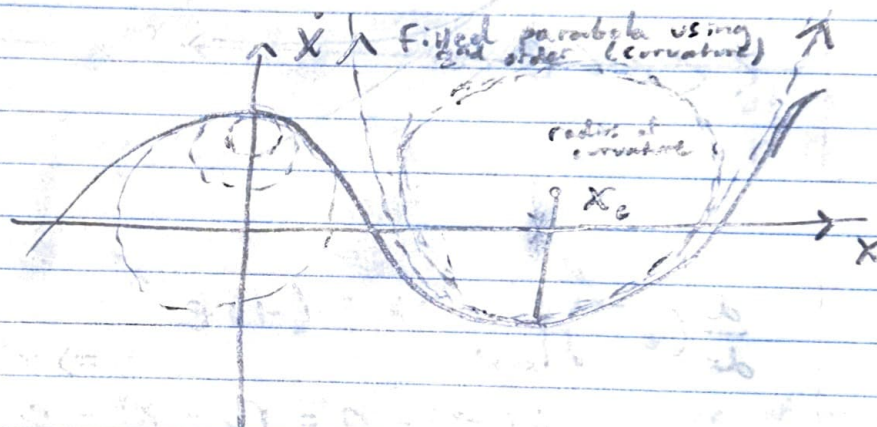 Ẋ
Fitted parabola using
2nd order (curvature)
radius of
curvature
X₀
X